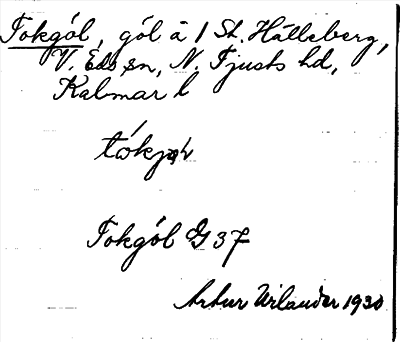 Tokgöl, göl å 1 St. Hälleberg,
V. Eds sn, N. Tjusts hd,
Kalmar l
Tokgöl G 37
Artur Wilander 1930